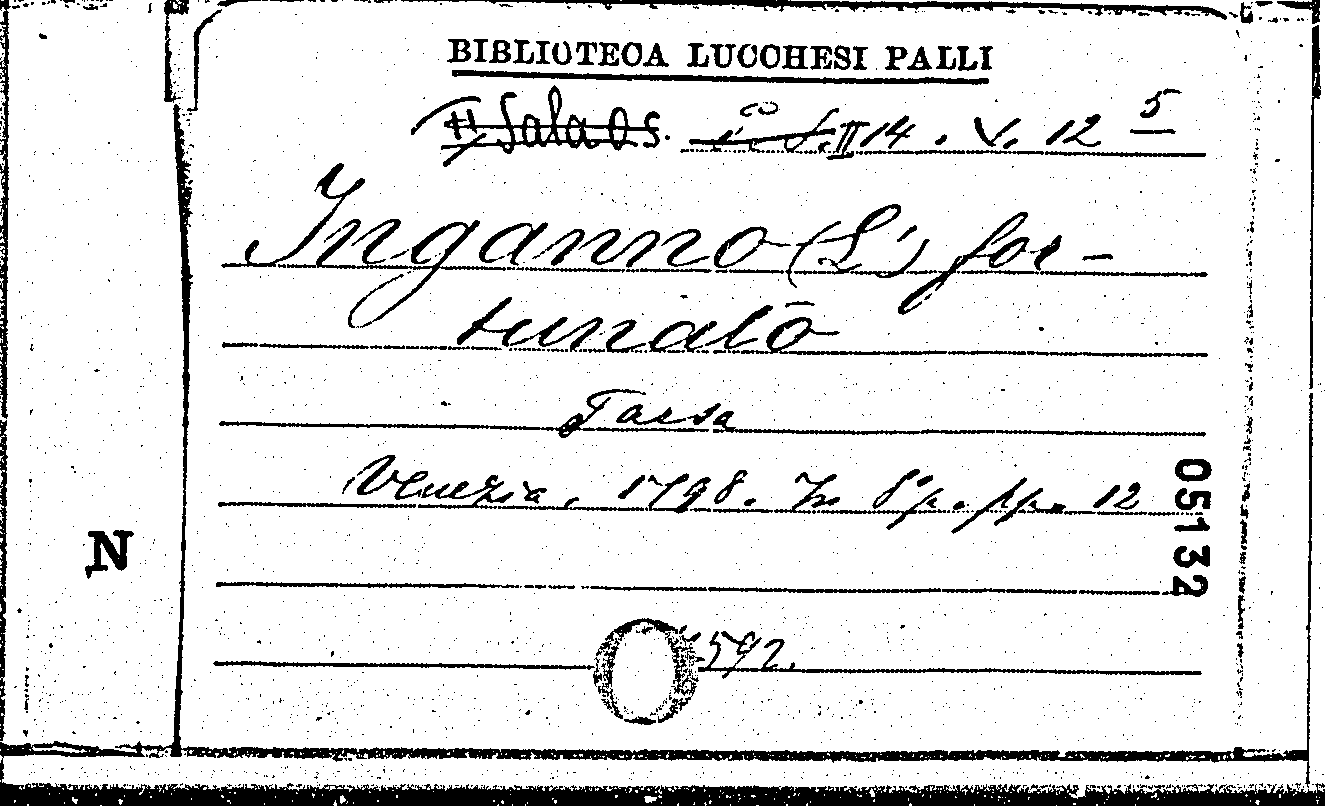 BIBLIOTECA LUCCHESI PALLI
II Sala Os. II 14 . V. 12 5
Inganno (L') for-
tunato
Farsa
Venezia. 1798. In 8° p. pp. 12
05132
N
592.